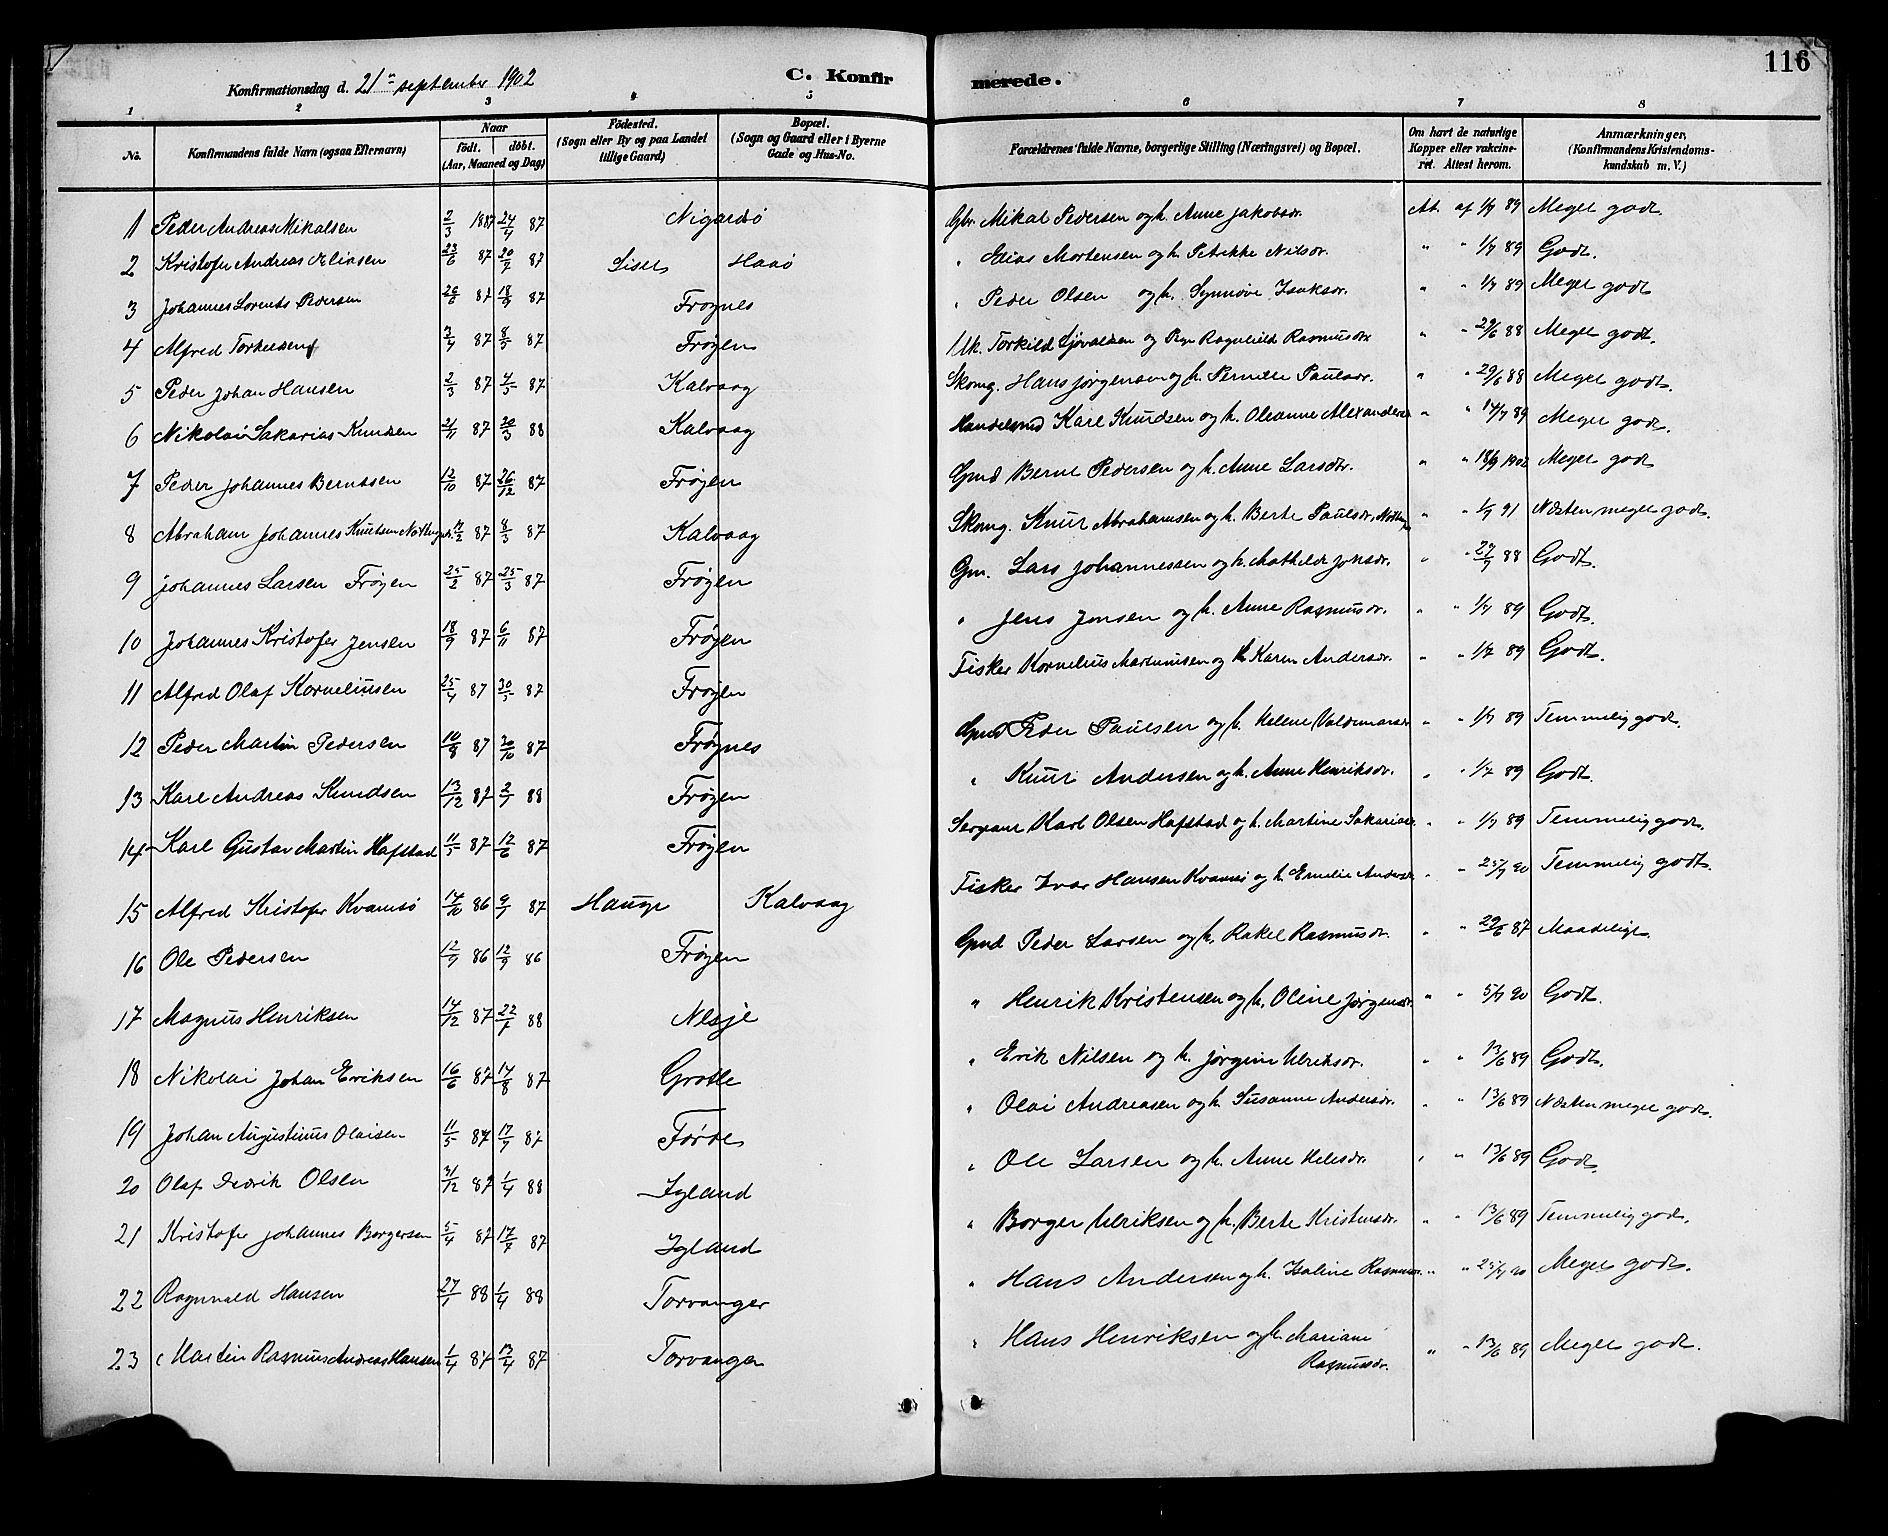 116
Konfirmationsdag d. 21de september 1902
C. Konfirmerede.
1 2 3 4 5 6 7 8
No.
Konfirmandens fulde Navn (ogsaa Efternavn)
Naar
födt. döbt.
(Aar, Maaned og Dag)
Födested.
(Sogn eller By og paa Landet
tillige Gaard)
Bopæl.
(Sogn og Gaard eller i Byerne
Gade og Hus-No.
Forældrenes fulde Navne, borgerlige Stilling (Næringsvei) og Bopæl.
Om havt de naturlige
Kopper eller vakcine-
ret. Attest herom.
Anmærkninger,
(Konfirmandens Kristendoms-
kundskab m. V.)
1 Peder Andreas Mikalsen 2/3 1887 24/4 87 Nigardsö Gbr. Mikal Pedersen og h. Anne Jakobsdr. At. af 1/7 89 Meget godt.
2 Kristofer Andreas Eliasen 23/6 87 20/7 87 Haaö " Elias Mortensen og h. Petrikke Nilsdr. " " 1/7 89 Godt.
3 Johannes Lorents Pedersen 26/6 87 18/9 87 Frøgnes " Peder Olsen og h. Synnøve Isaksdr. " " 1/7 89 Meget godt
4 Alfred Torkildsen 3/4 87 8/5 87 Frøyen Uk. Torkild Sjovaldsen og Pige Ragnhild Rasmusdr " " 29/6 88 Meget godt.
5 Peder Johan Hansen 2/3 87 4/5 87 Kalvaag Skomg. Hans Jørgensen og h. Pernille Paulsdr. " " 29/6 88 Meget godt.
6 Nikolai Sakarias Knudsen 21/11 87 30/3 88 Kalvaag Handelsmd Karl Knudsen og h. Oleanne Alexandersdr " " 14/7 89 Meget godt.
7 Peder Johannes Berntsen 12/10 87 26/12 87 Frøyen Gmd Bernt Pedersen og h. Anne Larsdtr. " " 18/9 1902 Meget godt
8 Abraham Johannes Knutsen 87 8/3 87 Kalvaag Skomg. Knut Abrahamsen og h. Berte Paulsdr, " " 1/9 91 Næsten meget godt.
9 Johannes Larsen Frøyen 25/2 87 25/3 87 Frøyen Gm. Lars Johannessen og h. Mathilde Jonsdr. " " 27/7 88 Godt.
10 Johannes Kristofer Jensen 18/9 87 6/11 87 Frøyen " Jens Jonsen og h. Anne Rasmusdr. " " 1/7 89 Godt.
11 Alfred Olaf Korneliusen 25/4 87 30/5 87 Frøyen Fisker Kornelius Martinusen og h Karen Andersdr. " " 1/7 89 Godt.
12 Peder Martin Pedersen 10/8 87 30/10 87 Frøgnes Gmd Peder Paulsen og h. Helene Valdemarsdr " " 1/7 89 Temmelig godt.
13 Karl Andreas Knudsen 13/12 87 2/1 88 Frøyen " Knut Andersen og h. Anne Henriksdr. " " 1/7 89 Godt.
14 Karl Gustav Martin Hafstad 11/5 87 12/6 87 Frøyen Sergeant Karl Olsen Hafstad og h. Martine Sakariasdr " " 1/7 89 Temmelig godt.
15 Alfred Kristofer Kvamsö 17/10 86 9/1 87 Hauge Kalvaag Fisker Ivar Hansen Kvamsö og h. Emelie Andersdr " " 25/7 90 Temmelig godt.
16 Ole Pedersen 12/7 86 12/9 86 Frøyen Gmd Peder Larsen og h. Rakel Rasmusdr. " " 29/6 87 Maadelige.
17 Magnus Henriksen 14/12 87 22/1 88 Nesje " Henrik Kristensen og h. Oline Jørgensdr. " " 5/7 90 Godt.
18 Nikolai Johan Eriksen 16/6 87 14/8 87 Grotle " Erik Nilsen og h. Jørgine Ulriksdr. " " 13/6 89 Godt.
19 Johan Augustinus Olaisen 11/5 87 17/7 87 Förde " Olai Andreasen og h. Susanne Andersdr. " " 13/6 89 Næsten meget godt.
20 Olaf Didrik Olsen 31/12 87 1/4 88 Igland " Ole Larsen og h. Anne " " 13/6 89 Godt.
21 Kristofer Johannes Borgersen 5/4 87 17/7 87 Igland " Borger Ulriksen og h. Berte Kristensdr. " " 13/6 89 Temmelig godt.
22 Ragnvald Hansen 27/1 88 1/4 88 Torvanger " Hans Andersen og h. Isaline Rasmusdr. " " 25/7 90 Meget godt.
23 Martin Rasmus Andreas Hansen 1/4 87 13/4 87 Torvanger " Hans Henriksen og h. Mariane " " 13/6 89 Meget godt.
Rasmusdr.